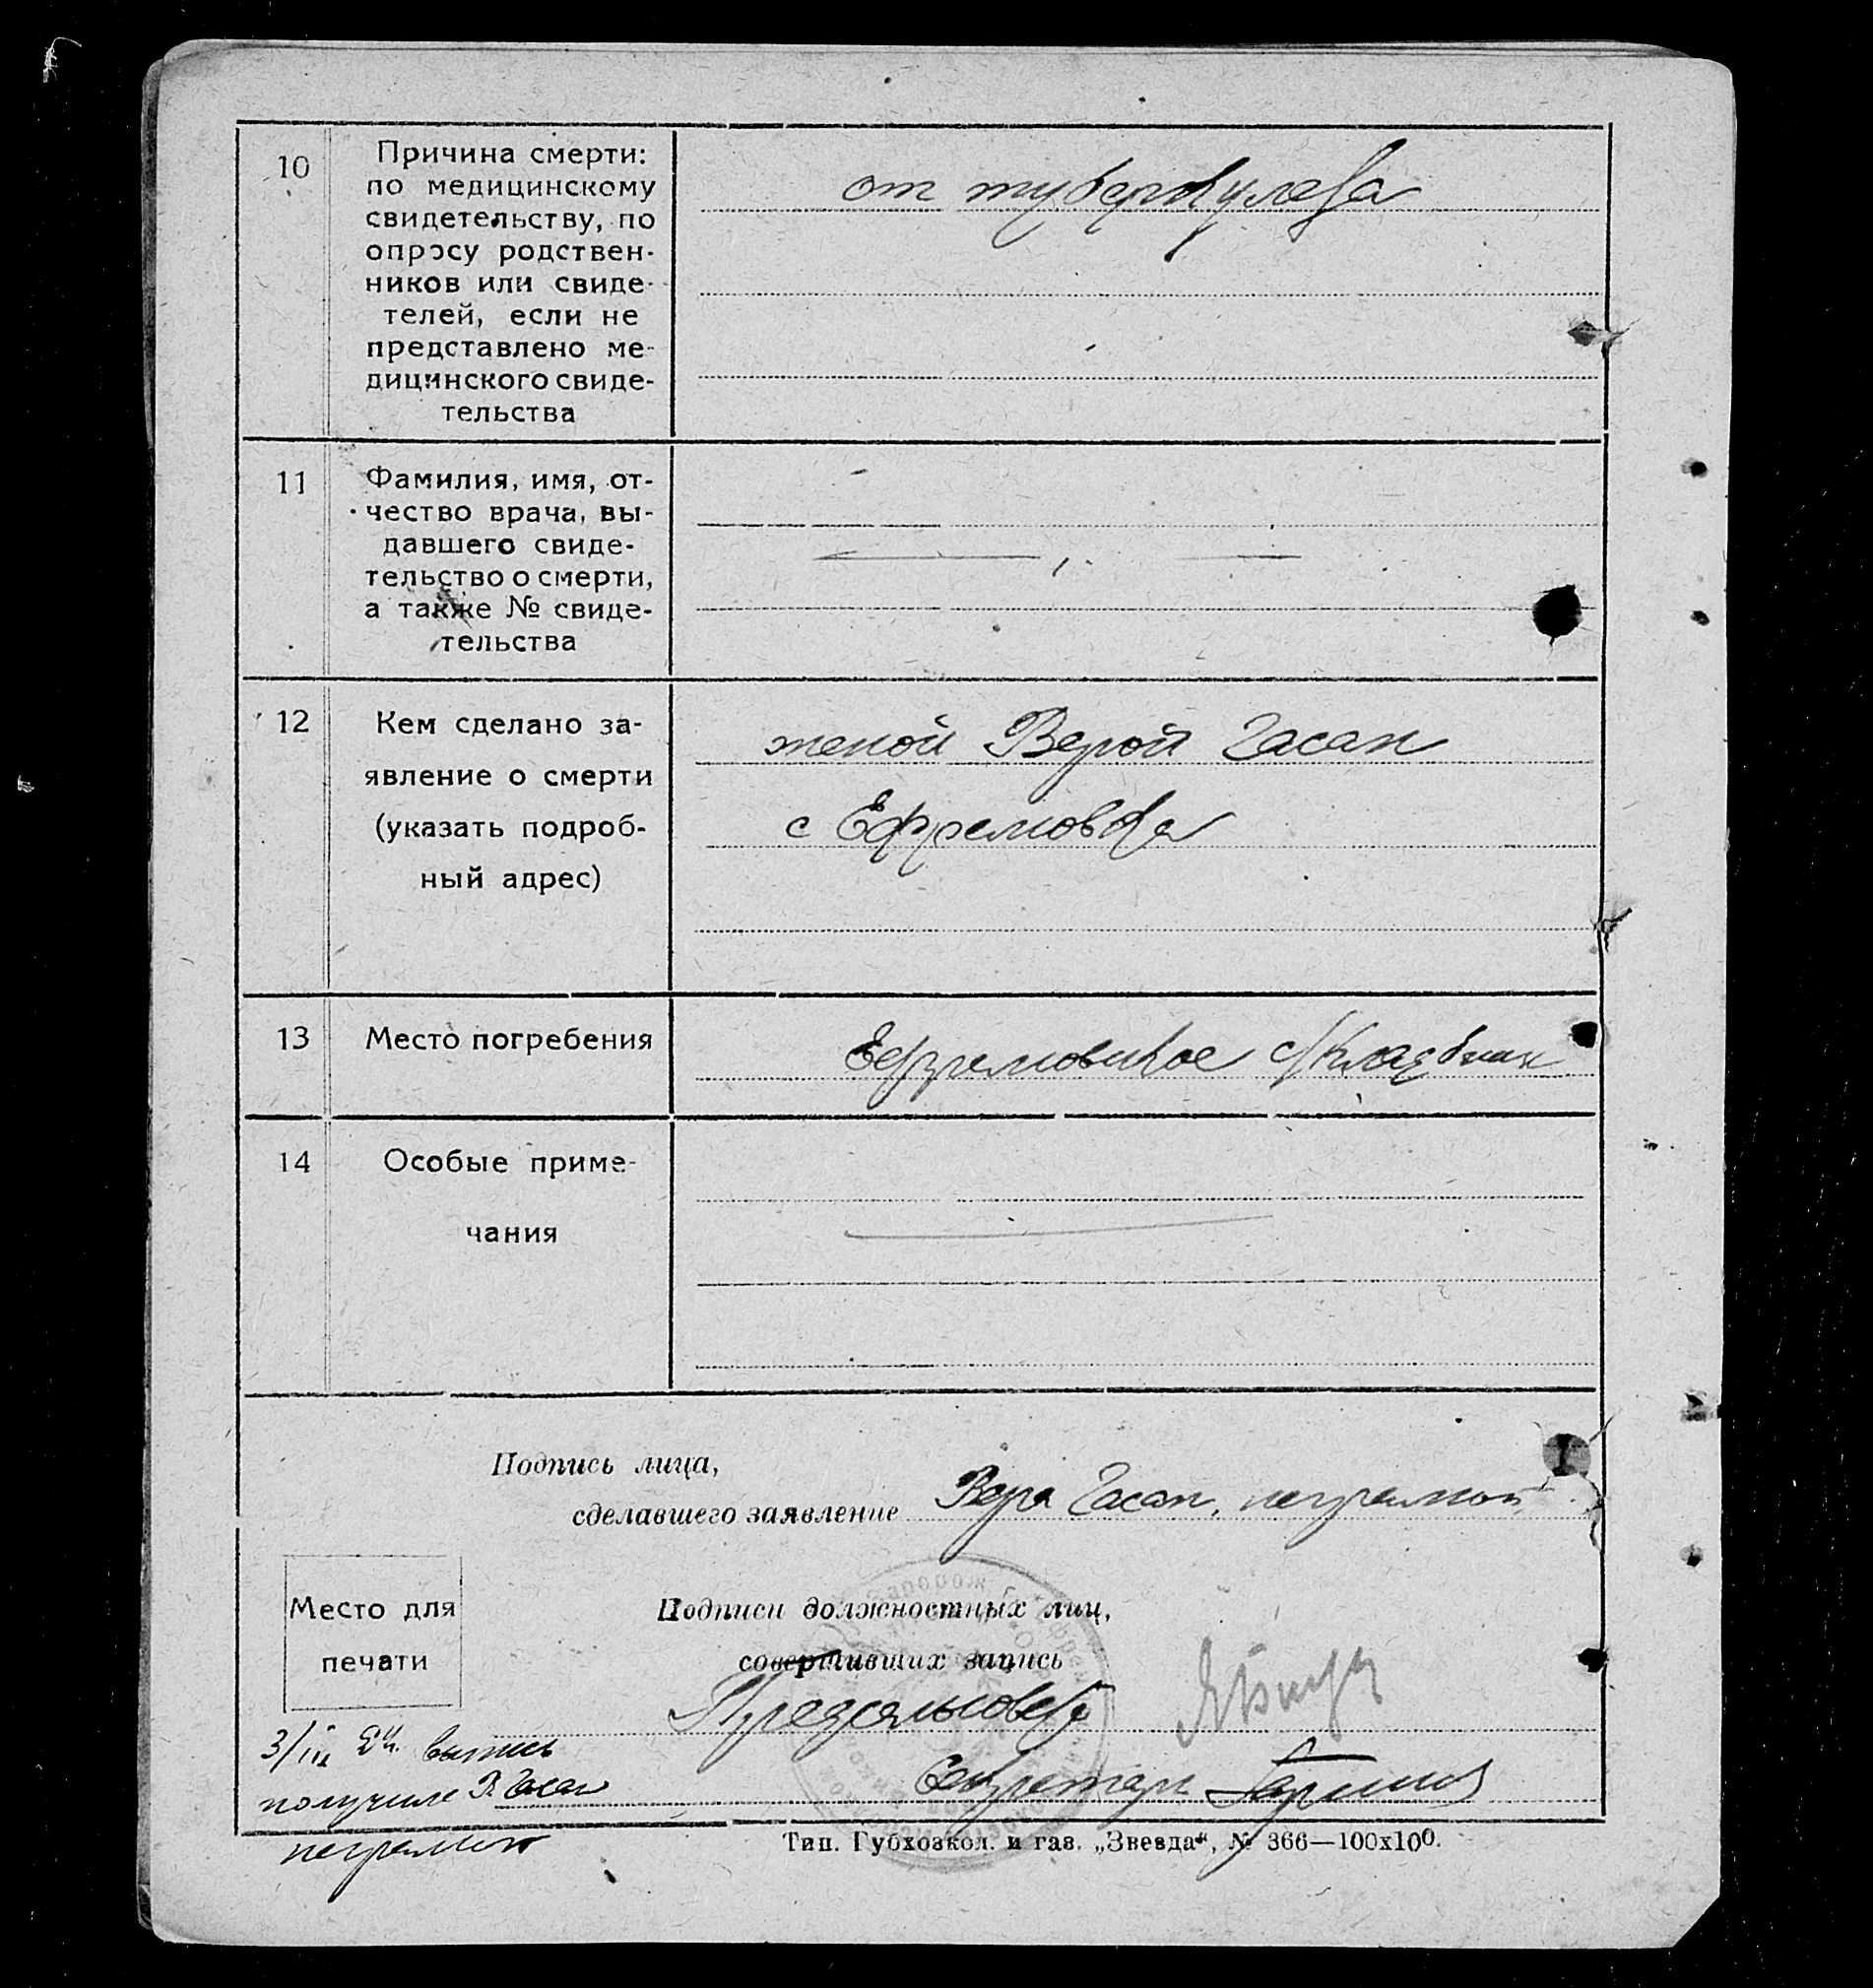 10
Причина смерти:
по медицинскому
свидетельству, по
опросу родствен-
ников или свиде-
телей, если не
представлено ме-
дицинского свиде-
тельства
от туберкулеза
11
Фамилия, имя, от-
чество врача, вы-
давшего свиде-
тельство о смерти,
а также № свиде-
тельства
12
Кем сделано за-
явление о смерти
(указать подроб-
ный адрес)
женой Верой Гасан
с Ефремовка
13
Место погребения
Ефремовское с/кладбище
14
Особые приме-
чания
Подпись лица,
сделавшего заявление
Вера Гасан, неграмот
Место для
печати
Подписи должностных лиц,
совершивших запись
Предсельсовета
3/III 24. выпись
получила В. Гасан
неграмот
Секретарь
Тип. Губхозкол. и газ. „Звезда“, № 366—100х100.